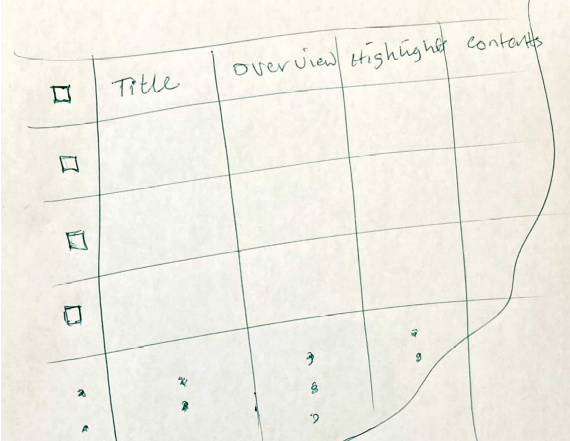 Title Overview Highlight contents